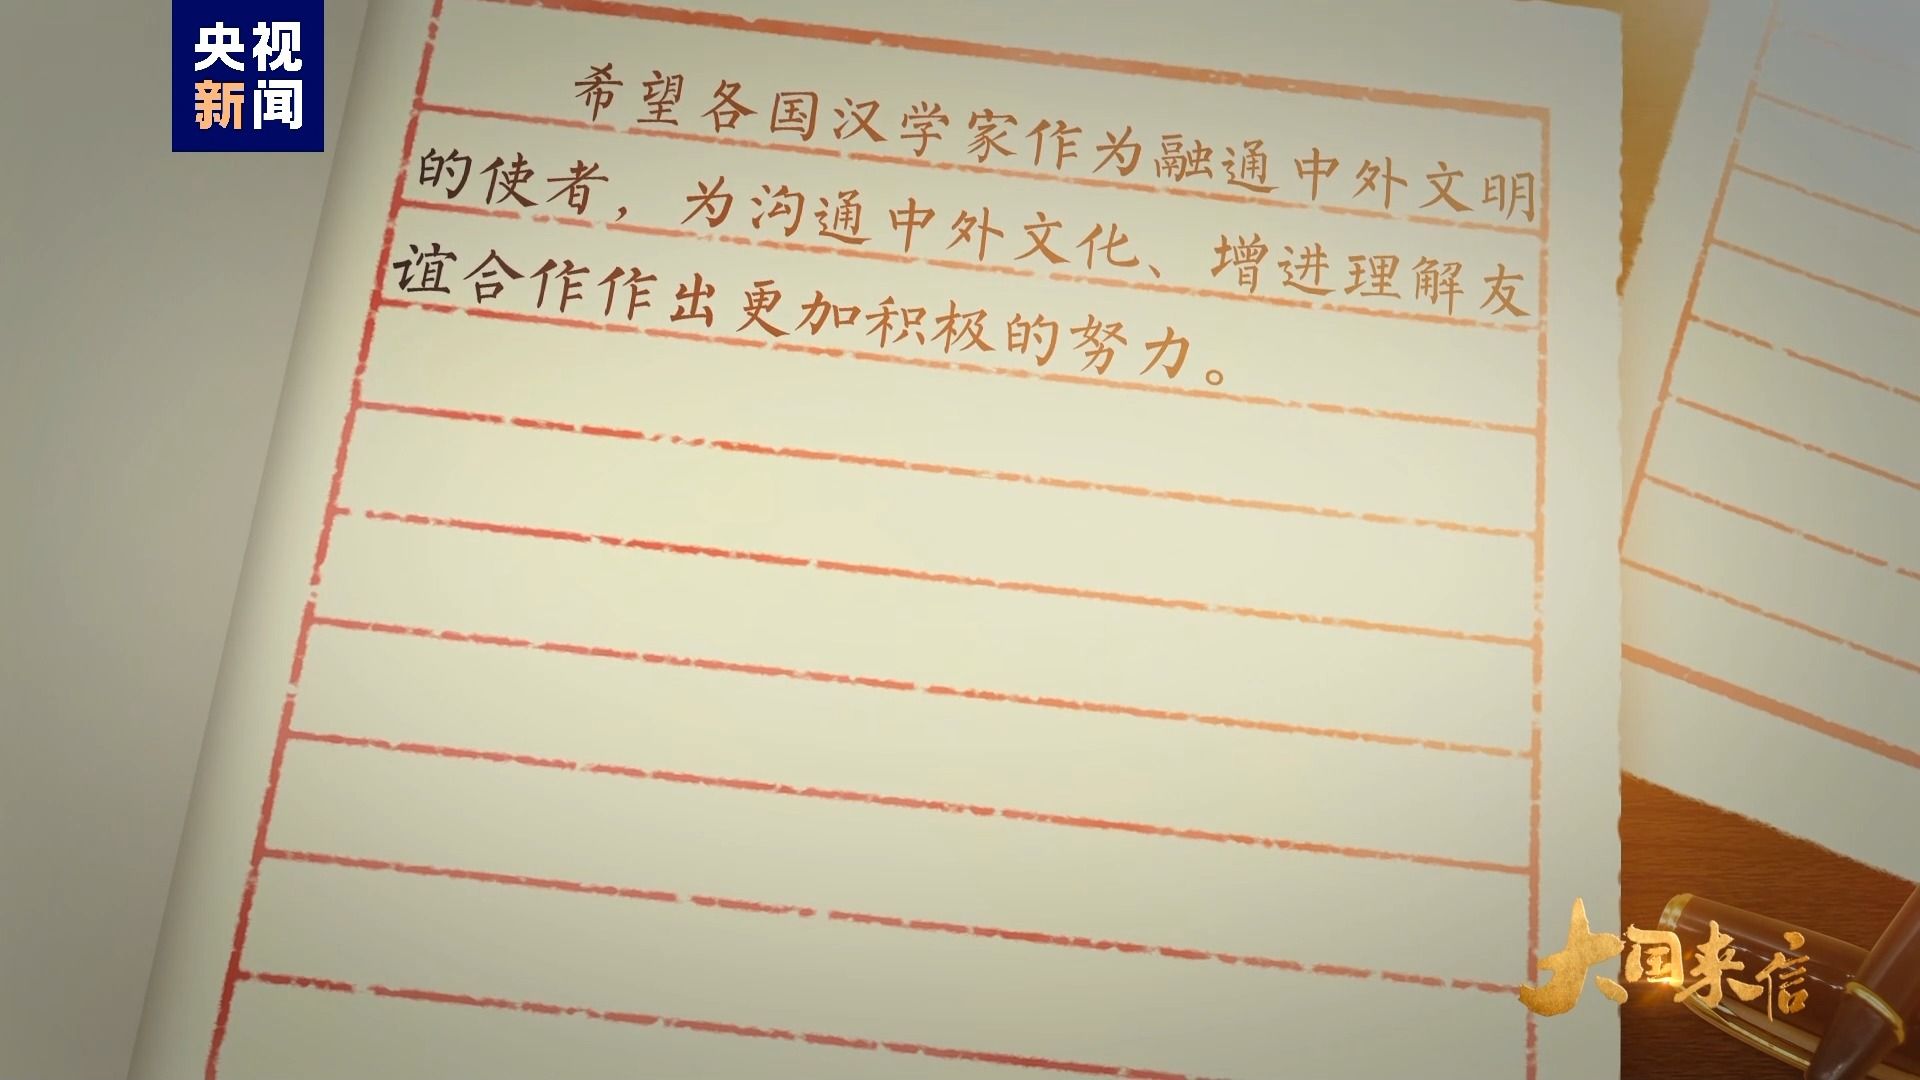 央视
新闻
希望各国汉学家作为融通中外文明
的使者，为沟通中外文化、增进理解友
谊合作作出更加积极的努力。
大国来信